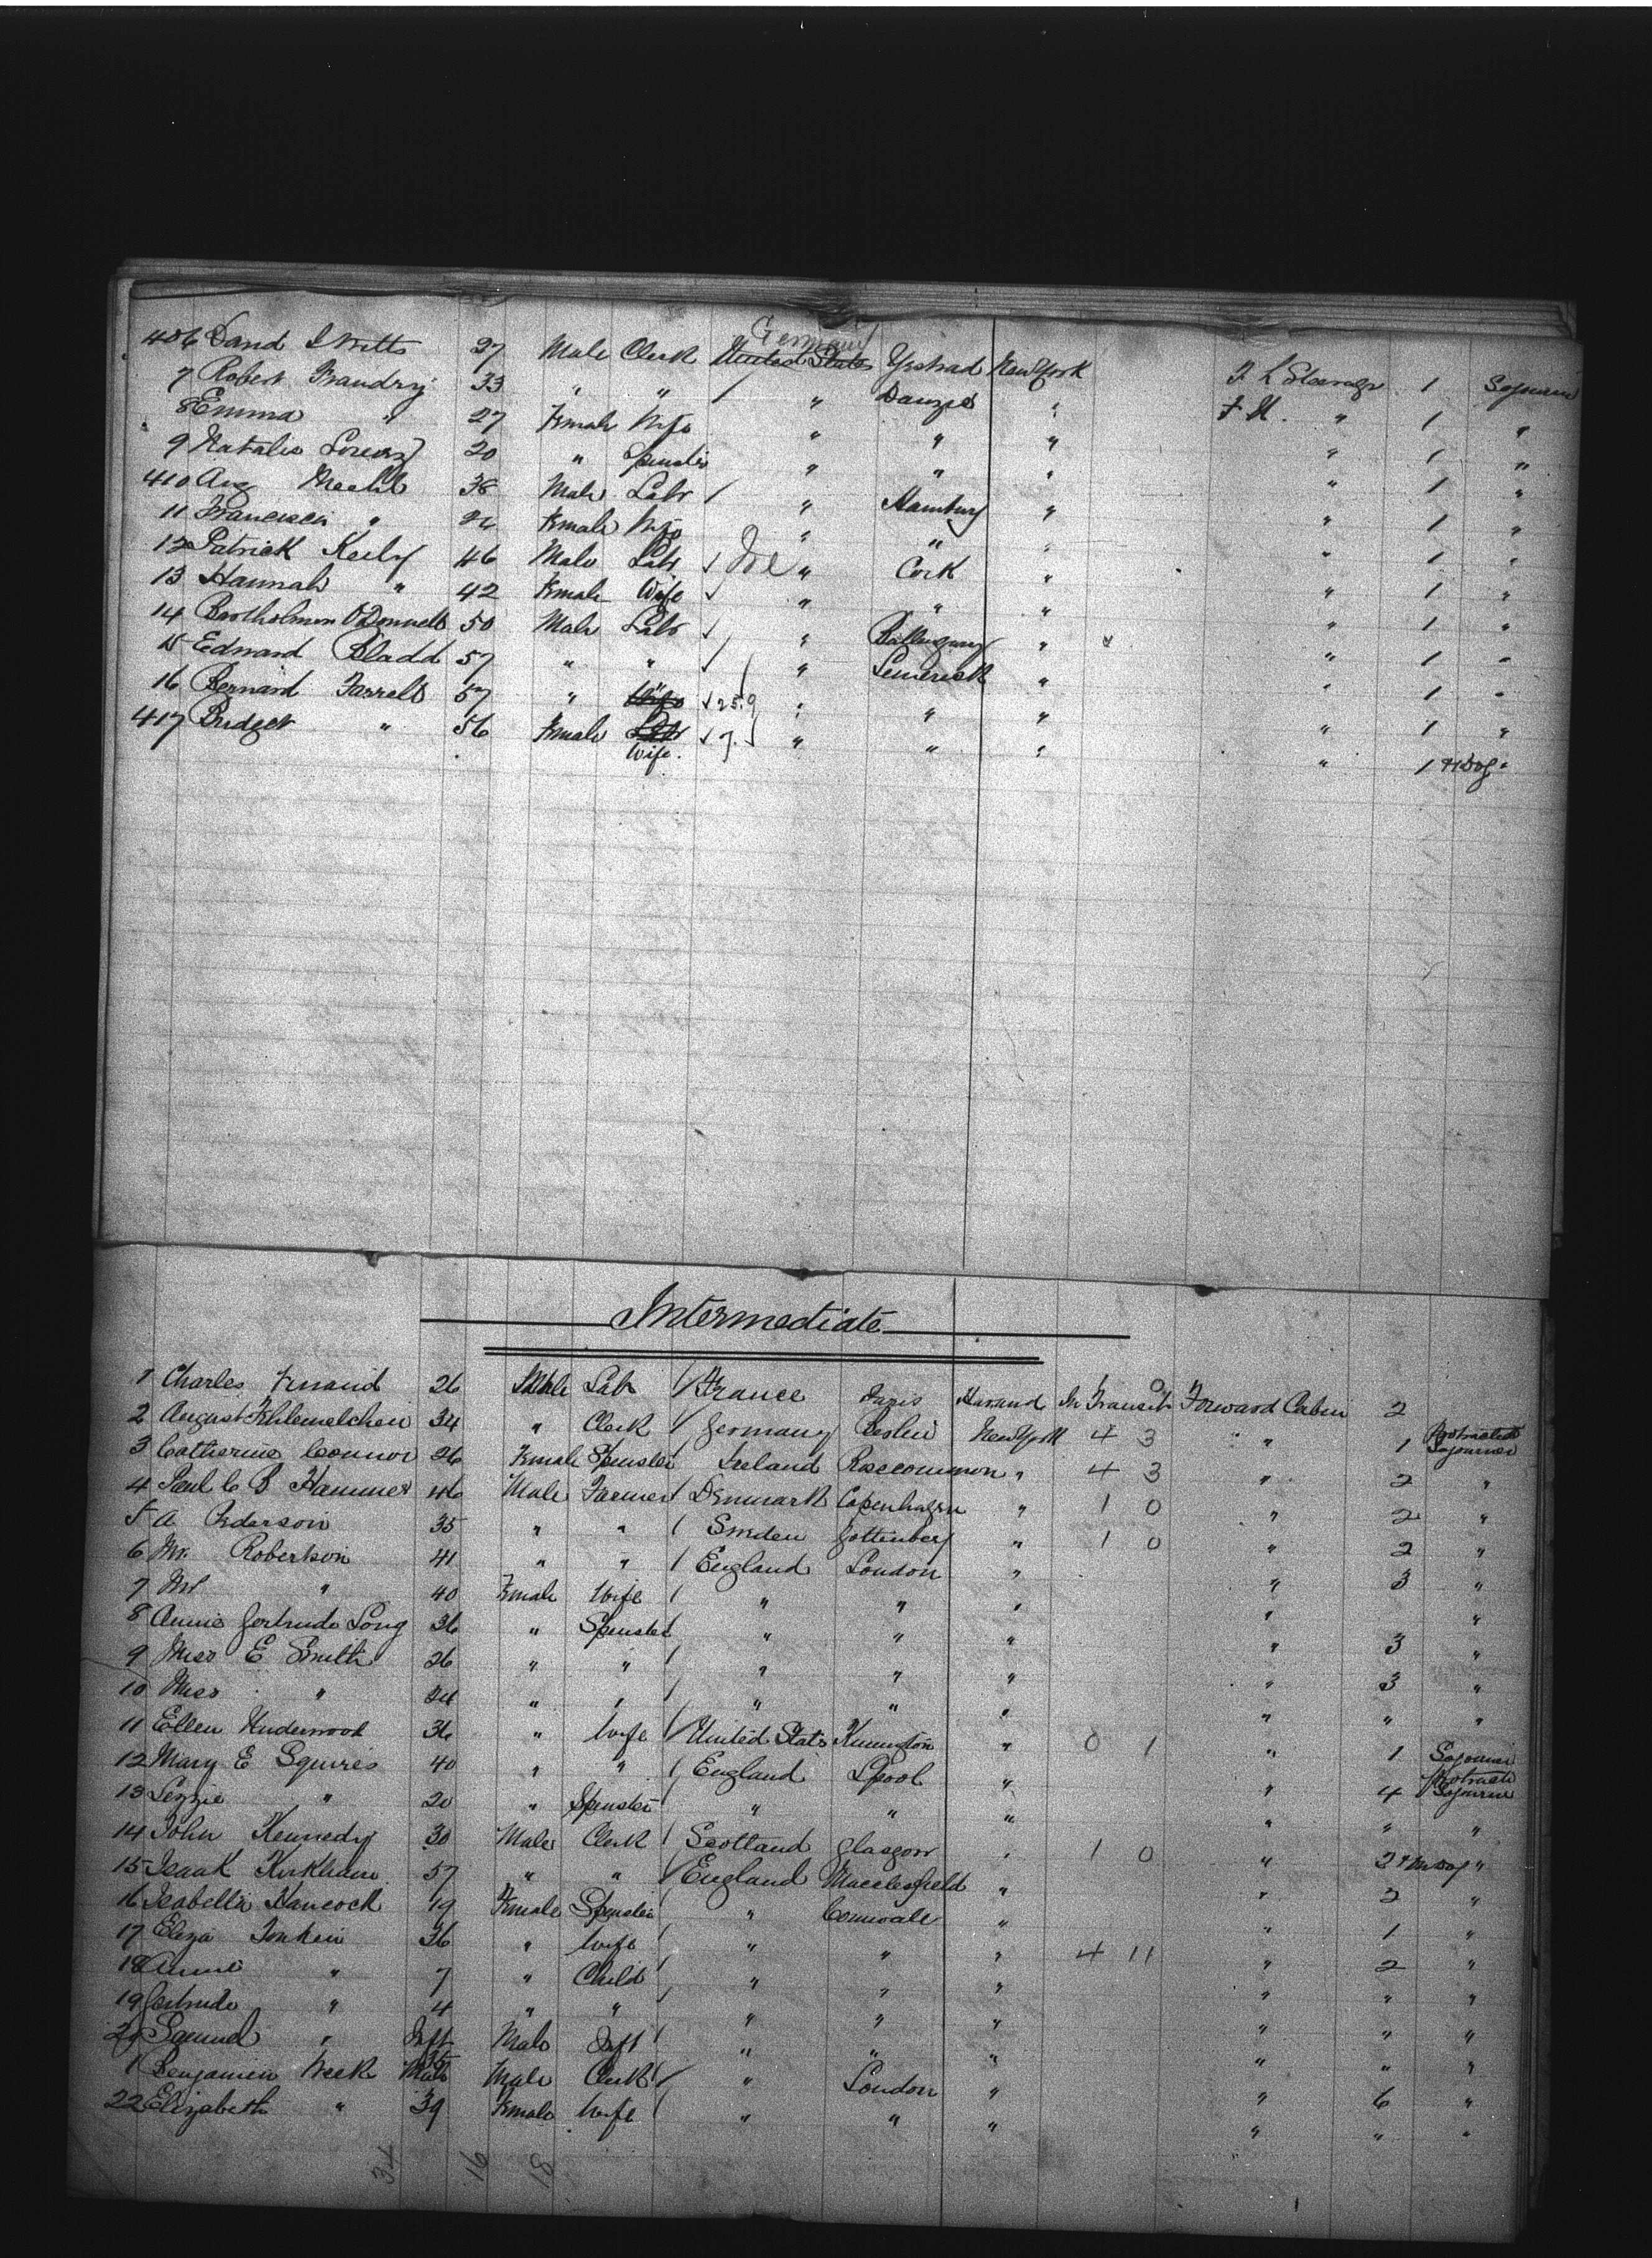 Germany
406 David I Witts 27 Male Clerk United States Ystrad New York F. L Steerage 1 Sojourn
7 Robert Fraudry 33 " " / " Danzig " F M. " 1 "
8 Emma " 27 Female Wife " " " " 1 "
9 Natalie Lorenz 20 " Spinster " " " " 1 "
410 Aug Mechl 38 Male Labr / " Hamburg " " 1 "
11 Francisca " 26 Female Wife " " " " 1 "
12 Patrick Keily 46 Male Labr ✓ Ire " Cork " " 1 "
13 Hannah " 42 Female Wife ✓ " " " " 1 "
14 Bartholmew O'Donnell 50 Male Labr ✓ " " " 1 "
15 Edward Bladd 57 " " ✓ " Limerick " " 1 "
16 Bernard Farrell 57 " " ✓ 25.9 " " " " 1 "
417 Bridget " 56 Female Labr ✓ 7. " " " " 1 "
Wife.
Intermediate
1 Charles 26 Male Labr / France Paris Havand In Transit Forward Cabin 2
2 August 34 " Clerk / Germany Berlin New York 4 3 " " 1 Protracted Sojourner
3 Catherine Connor 26 Female Spinster Ireland Roscommon " 4 3 " 2 "
4 Paul C B Hammer 46 Male Farmer / Denmark Copenhagen " 1 0 " 2 "
5 A Pederson 35 " " / Sweden Gottenberg " 1 0 " 2 "
6 Mr. Robertson 41 " " / England London " " 3 "
7 Mrs " 40 Female Wife / " " " " "
8 Annie Gertrude Long 36 " Spinster / " " " " 3 "
9 Miss E Smith 26 " " / " " " " 3 "
10 Miss " 24 " " / " " " " " "
11 Ellen Underwood 36 " Wife / United States Kennington " 0 1 " 1 Sojourner
12 Mary E Squires 40 " " / England Lpool " " 4 Protracted Sojourner
13 Lizzie " 20 " Spinster " " " " " "
14 John Kennedy 30 Male Clerk / Scotland Glasgow " 1 0 " 2 "
15 Isaak Kirkham 57 " " / England Macclesfield " " 2 "
16 Isabella Hancock 19 Female Spinster / " Cornwall " " 1 "
17 Eliza Tonkin 36 " Wife / " " " 4 11 " 2 "
18 Annie " 7 " Child / " " " " " "
19 Gertrude " 4 " " / " " " " " "
20 Samuel " Inft Male Inft / " " " " " "
1 Benjamin Week 35 Male Male Clerk / " London " " 6 "
22 Elizabeth " 39 Female Wife / " " " " " "
34 16 18